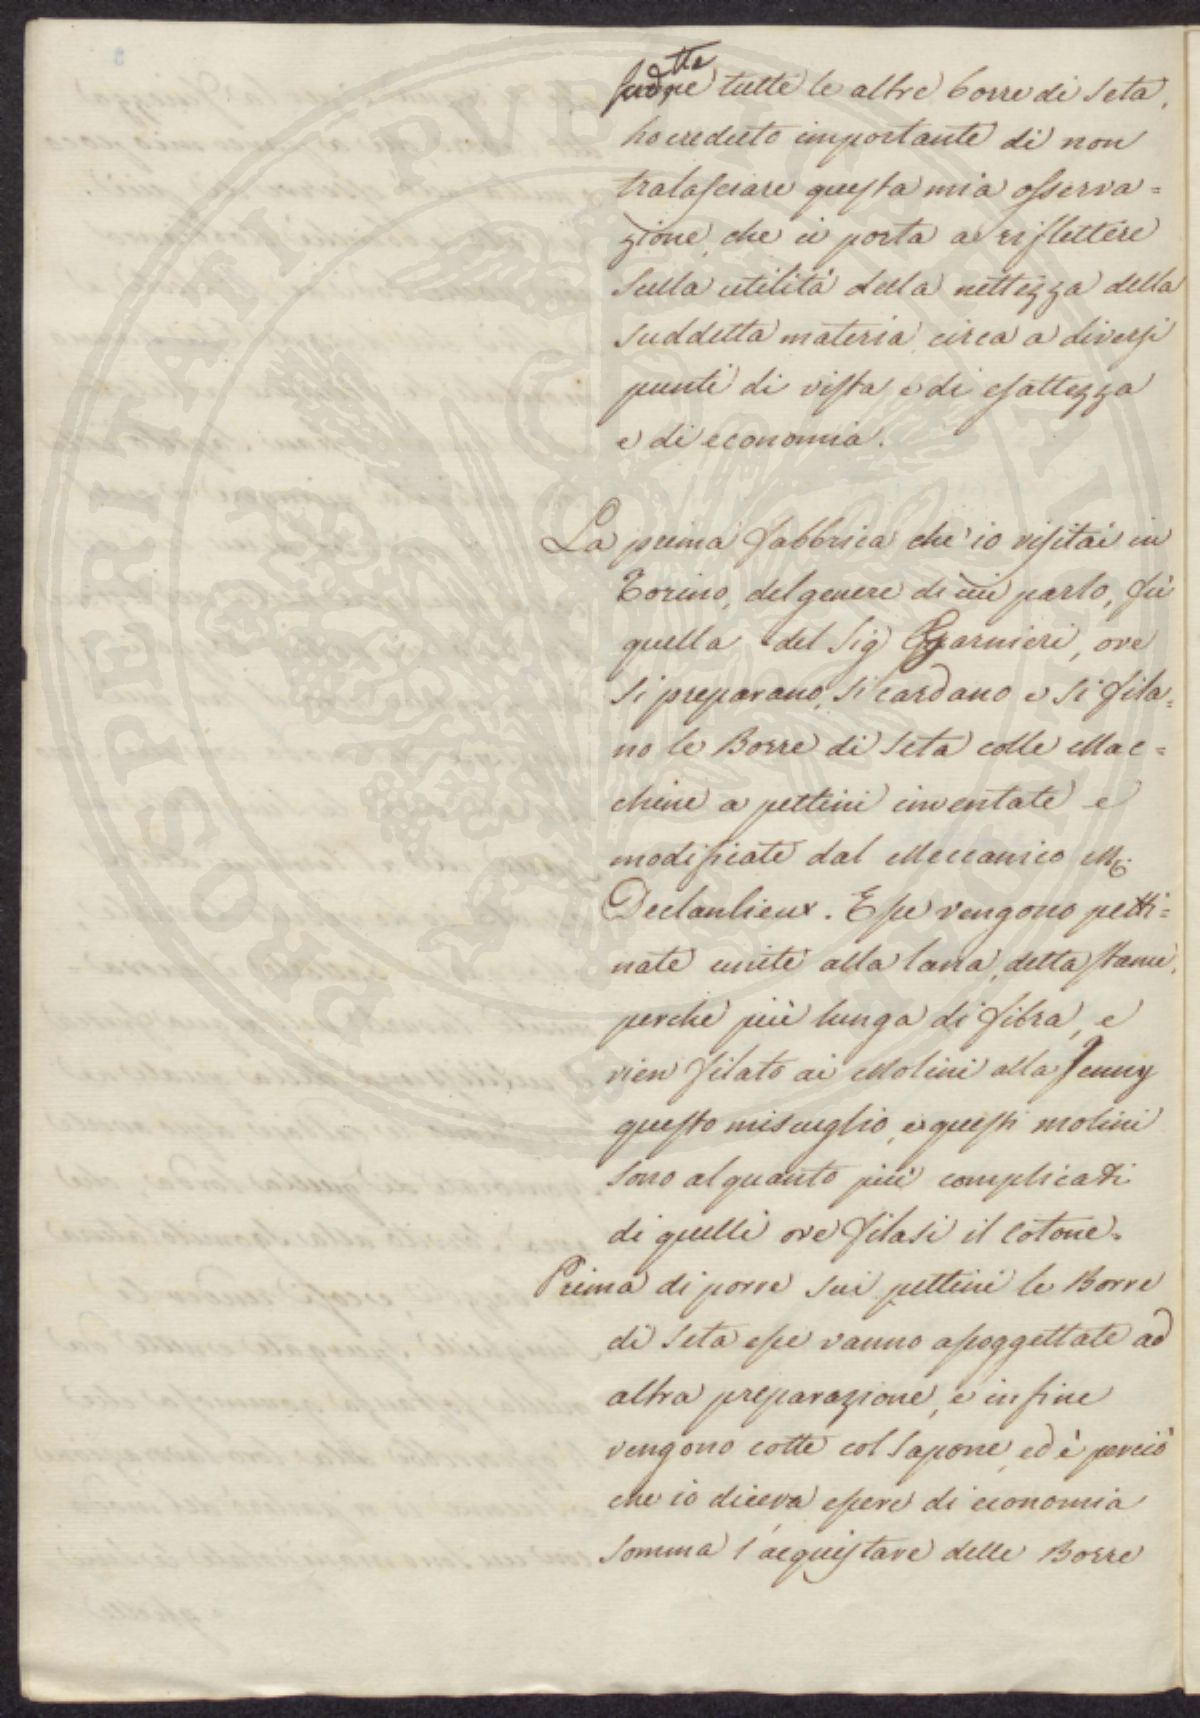 tutte le altre borre di seta,
ho creduto importante di non
tralasciare questa mia osserva=
zione, che ci porta a riflettere
sulla utilità della nettezza della
suddetta materia, circa a diversi
punti di vista e di esattezza
e di economia.
La prima fabbrica ch'io visitai in
Torino, del genere di cui parlo, fu
quella del Sig Guarnieri, ove
si preparano, si cardano e si fila=
no le Borre di Seta colle Mac=
chine a pettini inventate e
modificate dal Meccanico Mr.
Declanlieux. Esse vengono petti=
nate unite alla lana, detta stame,
perché più lunga di fibra, e
vien filato ai Molini alla Jenny
questo miscuglio, e questi molini
sono alquanto più complicati
di quelli ove filasi il Cotone.
Prima di porre sui pettini le Borre
di Seta esse vanno assoggettate ad
altra preparazione, e infine
vengono cotte col Sapone, ed è perciò
che io diceva essere di economia
somma l'acquistare delle Borre
PROSPERITATI PVBLICAE